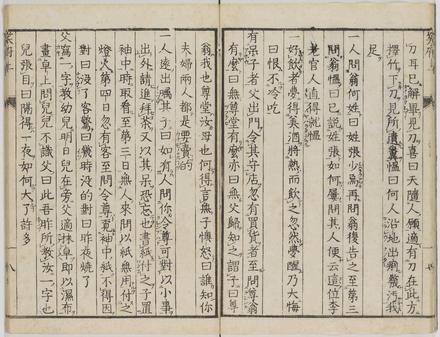 刀耳已解畢見刀喜曰天隨人願適有刀在此方
擇竹下刀見所遺糞慍曰何人沿地出痢幾汚我
足
一人問翁何姓曰姓張少焉再問翁復告之至第三
問翁慍曰已說姓張如何屢問其人便云這位李
老官人直得就慍
一好飲者夢得美酒將熱而飲之忽然夢醒乃大悔
曰恨不冷吃
有呆子者父出門令其守店忽有買貨者至問尊翁
有麼曰無尊堂有麼亦曰無父歸知之謂子曰尊
翁我也尊堂汝母也何得言無子懊怒曰誰知你
夫婦兩人都是要賣的
一人遠出囑其子曰如有人問你令尊可對以小事
出外請進拜茶又以其呆恐忘也書紙付之子置
袖中時取看至第三日無人來問以紙無用付之
燈火第四日忽有客至問令尊覓袖中紙不得因
對曰沒了客驚曰幾時沒的對曰昨夜燒了
父寫一字教幼兒明日兒在旁父適抹卓即以濕布
畫卓上問兒兒不識父曰此吾昨所教汝一字也
兒張目曰隔得一夜如何大了許多
八